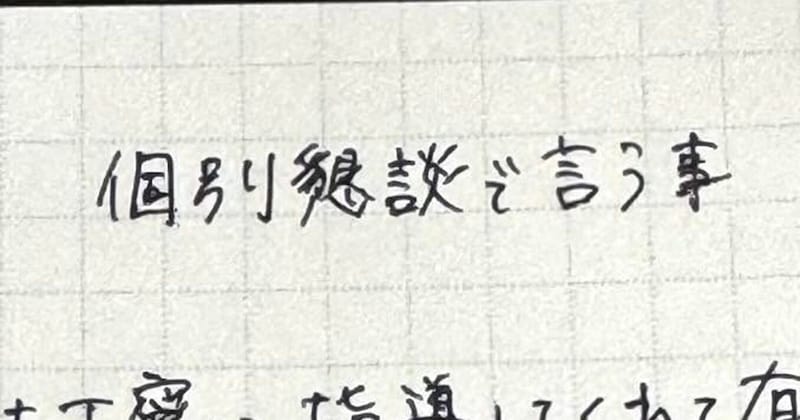 個別懇談で言う事
丁寧 指導してくれて有